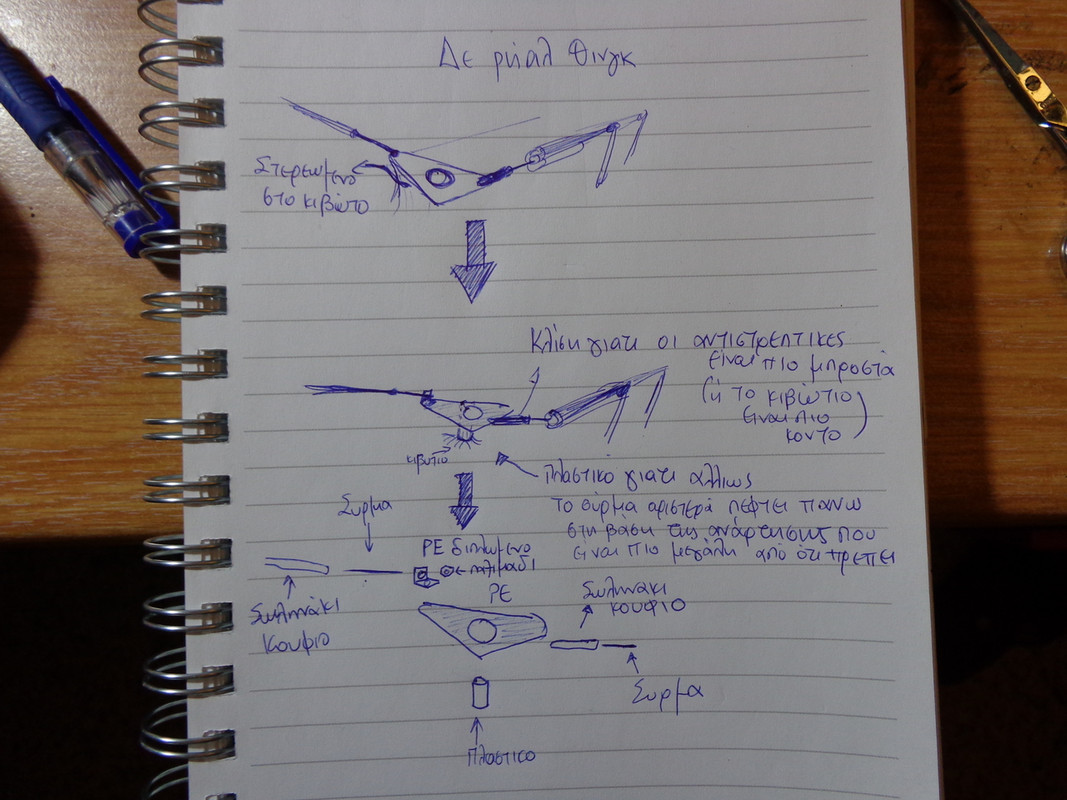 Δε ρήαλ θινγκ
Στερεωμένο
στο κιβώτιο
Κλίση γιατι οι αντιστρεπτικες
είναι πιο μπροστά
(ή το κιβώτιο
είναι πιο
κοντο)
κιβωτιο
Πλαστικό γιατι αλλιως
το σύρμα αριστερά πεφτει πανω
στη βάση της ανάρτησης που
είναι πιο μεγάλη από ότι πρεπει
Συρμα
PE διπλωμενο
παξιμαδι
PE
Σωληνάκι
κουφιο
Σωληνάκι
Κουφιο
Συρμα
Πλαστικο